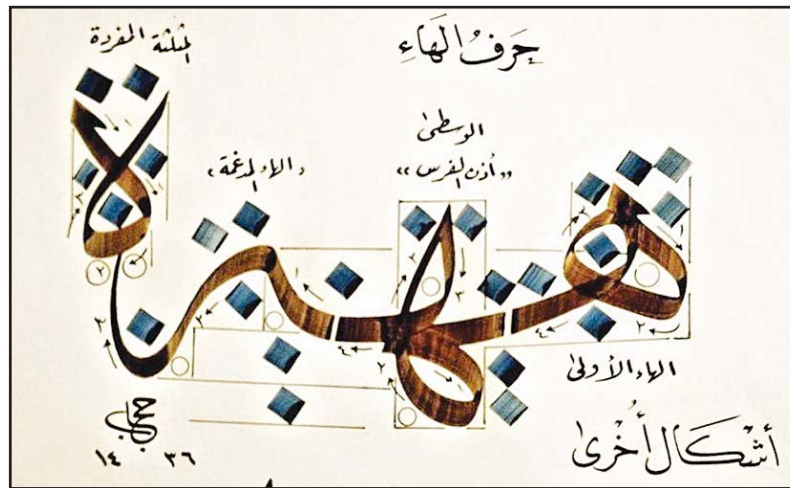 حَرفُ الهَاءِ
المثلثة المفردة
الوسطى
«أذن الفرس»
«الهاء المدغمة»
الهاء الأولى
أشكال أخرى
١٤ ٣٦